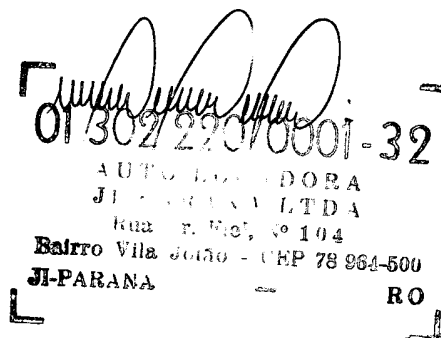 01 302 220/0001-32
AUTO LOCADORA
JI-PARANA LTDA
Rua Nº 104
Bairro Vila Jotão - CEP 78 964-500
JI-PARANA — RO